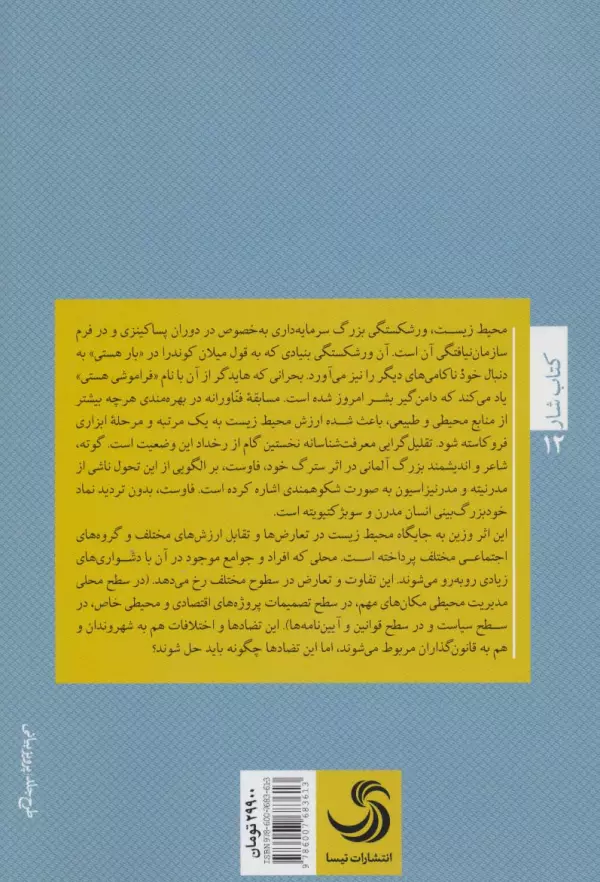 محیط زیست، ورشکستگی بزرگ سرمایه‌داری به‌خصوص در دوران پساکینزی و در فرم
سازمان‌نیافتگی آن است. آن ورشکستگی بنیادی که به قول میلان کوندرا در «بار هستی» به
دنبال خودْ ناکامی‌های دیگر را نیز می‌آورد. بحرانی که هایدگر از آن با نام «فراموشی هستی»
یاد می‌کند که دامن‌گیر بشر امروز شده است. مسابقهٔ فنّاورانه در بهره‌مندی هرچه بیشتر
از منابع محیطی و طبیعی، باعث شده ارزش محیط زیست به یک مرتبه و مرحلهٔ ابزاری
فروکاسته شود. تقلیل‌گرایی معرفت‌شناسانه نخستین گام از رخداد این وضعیت است. گوته،
شاعر و اندیشمند بزرگ آلمانی در اثر سترگ خود، فاوست، بر الگویی از این تحول ناشی از
مدرنیته و مدرنیزاسیون به صورت شکوهمندی اشاره کرده است. فاوست، بدون تردید نماد
خودبزرگ‌بینی انسان مدرن و سوبژکتیویته است.
این اثر وزین به جایگاه محیط زیست در تعارض‌ها و تقابل ارزش‌های مختلف و گروه‌های
اجتماعی مختلف پرداخته است. محلی که افراد و جوامع موجود در آن با دشواری‌های
زیادی روبه‌رو می‌شوند. این تفاوت و تعارض در سطوح مختلف رخ می‌دهد. (در سطح محلی
مدیریت محیطی مکان‌های مهم، در سطح تصمیمات پروژه‌های اقتصادی و محیطی خاص، در
سطح سیاست و در سطح قوانین و آیین‌نامه‌ها). این تضادها و اختلافات هم به شهروندان و
هم به قانون‌گذاران مربوط می‌شوند، اما این تضادها چگونه باید حل شوند؟
کتاب شار
۱۲
طرح جلد: پرویز بیانی
انتشارات تیسا
۲۹۹۰۰ تومان
ISBN 978-600-7683-61-3
9 786007 683613